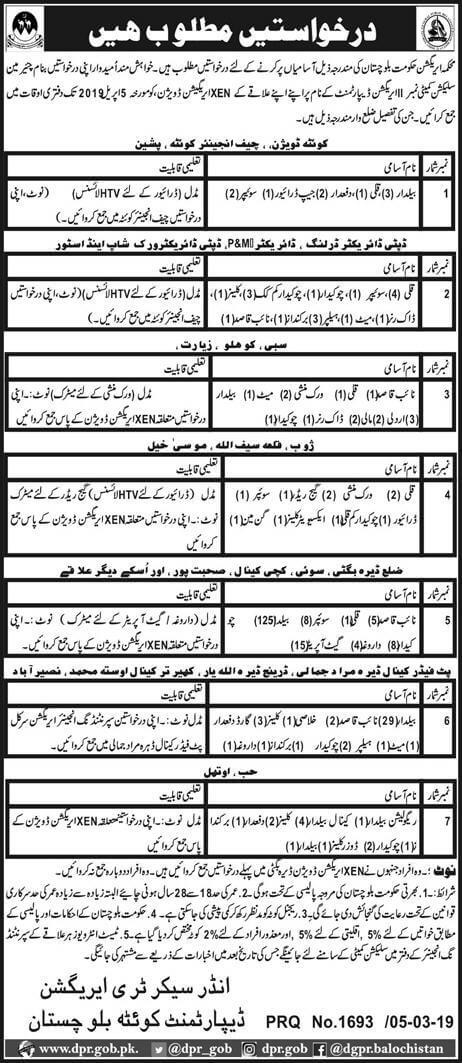 درخواستیں مطلوب ہیں
محکمہ ایریگیشن حکومت بلوچستان کی مندرجہ ذیل آسامیاں پر کرنے کے لئے درخواستیں مطلوب ہیں۔ خواہش مند امیدوار اپنی درخواستیں بنام چیئرمین
سلیکشن کمیٹی نمبر II ایریگیشن ڈیپارٹمنٹ کے نام پر اپنے اپنے علاقے کے XEN ایریگیشن ڈویژن، کو مورخہ 5 اپریل 2019 تک دفتری اوقات میں
جمع کرائیں۔ جن کی تفصیل ضلع وار مندرجہ ذیل ہیں۔
کوئٹہ ڈویژن، چیف انجینئر کوئٹہ، پشین
نمبر شمار نام آسامی تعلیمی قابلیت
1 بیلدار (3) قلی (1)، دفعدار (2) جیپ ڈرائیور (1) سوئیپر (2) مڈل (ڈرائیور کے لئے HTV لائسنس) (نوٹ، اپنی
درخواستیں چیف انجینئر کوئٹہ میں جمع کروائیں۔)
ڈپٹی ڈائریکٹر ڈرلنگ، ڈائریکٹر P&M، ڈپٹی ڈائریکٹر ورک شاپ اینڈ اسٹور
نمبر شمار نام آسامی تعلیمی قابلیت
2 قلی (4)، سوئیپر (1)، چوکیدار (1)، چوکیدار کم کک (3)، کلینر (1)، مڈل (ڈرائیور کے لئے HTV لائسنس) (نوٹ، اپنی درخواستیں
ڈاک رنر (1)، میٹ (1)، ہیلپر (3) برکنداز (1)، نائب قاصد (1) چیف انجینئر کوئٹہ میں جمع کروائیں۔)
سبی، کوہلو، زیارت،
نمبر شمار نام آسامی تعلیمی قابلیت
3 نائب قاصد (1) قلی (1) ورک منشی (2) میٹ (1) بیلدار مڈل (ورک منشی کے لئے میٹرک) نوٹ:۔ اپنی
(3) اردلی (2) مالی (2) ڈاک رنر (1) چوکیدار (1) درخواستیں متعلقہ XEN ایریگیشن ڈویژن کے پاس جمع کروائیں
ژوب، قلعہ سیف اللہ، موسیٰ خیل
نمبر شمار نام آسامی تعلیمی قابلیت
4 قلی (2) ورک منشی (2) گیج ریڈر (1) سوئیپر (1) مڈل (ڈرائیور کے لئے HTV لائسنس) گیج ریڈر کے لئے میٹرک
ڈرائیور (1) چوکیدار کم قلی (1) ایکسیویٹر کلینر (1) گن مین (1) نوٹ:۔ اپنی درخواستیں متعلقہ XEN ایریگیشن ڈویژن کے پاس جمع
کروائیں
ضلع ڈیرہ بگٹی، سوئی، کچی کینال، صحبت پور، اور اُسکے دیگر علاقے
نمبر شمار نام آسامی تعلیمی قابلیت
5 نائب قاصد (5) قلی (1) سوئپر (8) بیلدار (125) چو مڈل (داروغہ / گیٹ آپریٹر کے لئے میٹرک) نوٹ:۔ اپنی
کیدار (8) داروغہ (4) گیٹ آپریٹر (15) درخواستیں متعلقہ XEN ایریگیشن ڈویژن کے پاس جمع کروائیں
پٹ فیڈر کینال ڈیرہ مراد جمالی، ڈرینج ڈیرہ اللہ یار، کھیرتر کینال اوستہ محمد، نصیر آباد
نمبر شمار نام آسامی تعلیمی قابلیت
6 بیلدار (29) نائب قاصد (2) خلاصی (1) کلینر (3) گارڈ دفعدار مڈل نوٹ:۔ اپنی درخواستیں سپرنٹنڈنگ انجینئر ایریگیشن سرکل
(1) میٹ (1) ہیلپر (2) چوکیدار (1) برکنداز (1) داروغہ (1) پٹ فیڈر کینال ڈیرہ مراد جمالی میں جمع کروائیں۔
حب، اوتھل
نمبر شمار نام آسامی تعلیمی قابلیت
7 ریگولیشن بیلدار (1) کینال بیلدار (4) کلینر (2) دفعدار (1) برکندا مڈل نوٹ:۔ اپنی درخواستیں متعلقہ XEN ایریگیشن ڈویژن کے
ز (1) چوکیدار (2) ڈوزر کلینر (1) بیلدار (1) پاس جمع کروائیں
نوٹ:۔ وہ افراد جنہوں نے XEN ایریگیشن ڈویژن ڈیرہ بگٹی میں پہلے درخواستیں جمع کرائیں ہیں۔ وہ افراد دوبارہ جمع نہ کرائیں۔
شرائط:۔ 1۔ بھرتی حکومت بلوچستان کی مروجہ پالیسی کے تحت ہوگی۔ 2۔ عمر کی حد 18 سے 28 سال ہونی چاہئے البتہ زیادہ سے زیادہ عمر کی حد سرکاری
قوانین کے تحت رعایت کی گنجائش دی جائے گی۔ 3۔ ریجنل کوٹہ کو مدنظر رکھ کر کمی پیشی کی جاسکتی ہے۔ 4۔ حکومت بلوچستان کے احکامات اور پالیسی کے
مطابق خواتین کے لئے 5%، اقلیتی کے لئے 5%، اور معذور افراد کے لئے 2% کوٹہ مختص کر دیا گیا ہے۔ 5۔ ٹیسٹ انٹرویوز ہر علاقے کے سپرنٹنڈ
نگ انجینئر کے دفتر میں سلیکشن کمیٹی کے سامنے لئے جائینگے جس کی تاریخ بعد میں اخبارات کے ذریعے سے مشتہر کی جائیگی۔
انڈر سیکرٹری ایریگیشن
ڈیپارٹمنٹ کوئٹہ بلوچستان
PRQ No.1693 /05-03-19
www.dpr.gob.pk. @dpr_gob @dgpr.balochistan